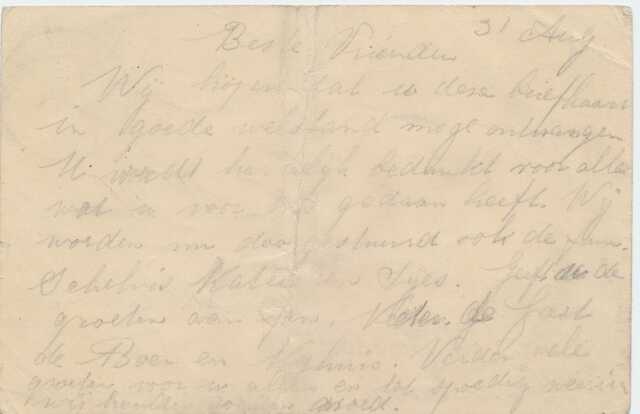 31 Aug
Beste Vrienden
Wij hopen dat u deze briefkaart
in goede welstand moge ontvangen
U wordt hartelijk bedankt voor alles
wat u voor ons gedaan heeft. Wij
worden nu doorgestuurd ook de fam.
Schelvis en
groeten aan Jan. de Gast
de Boer en Nijhuis. Verder vele
groeten voor u allen en tot spoedig weerziens
wij houden